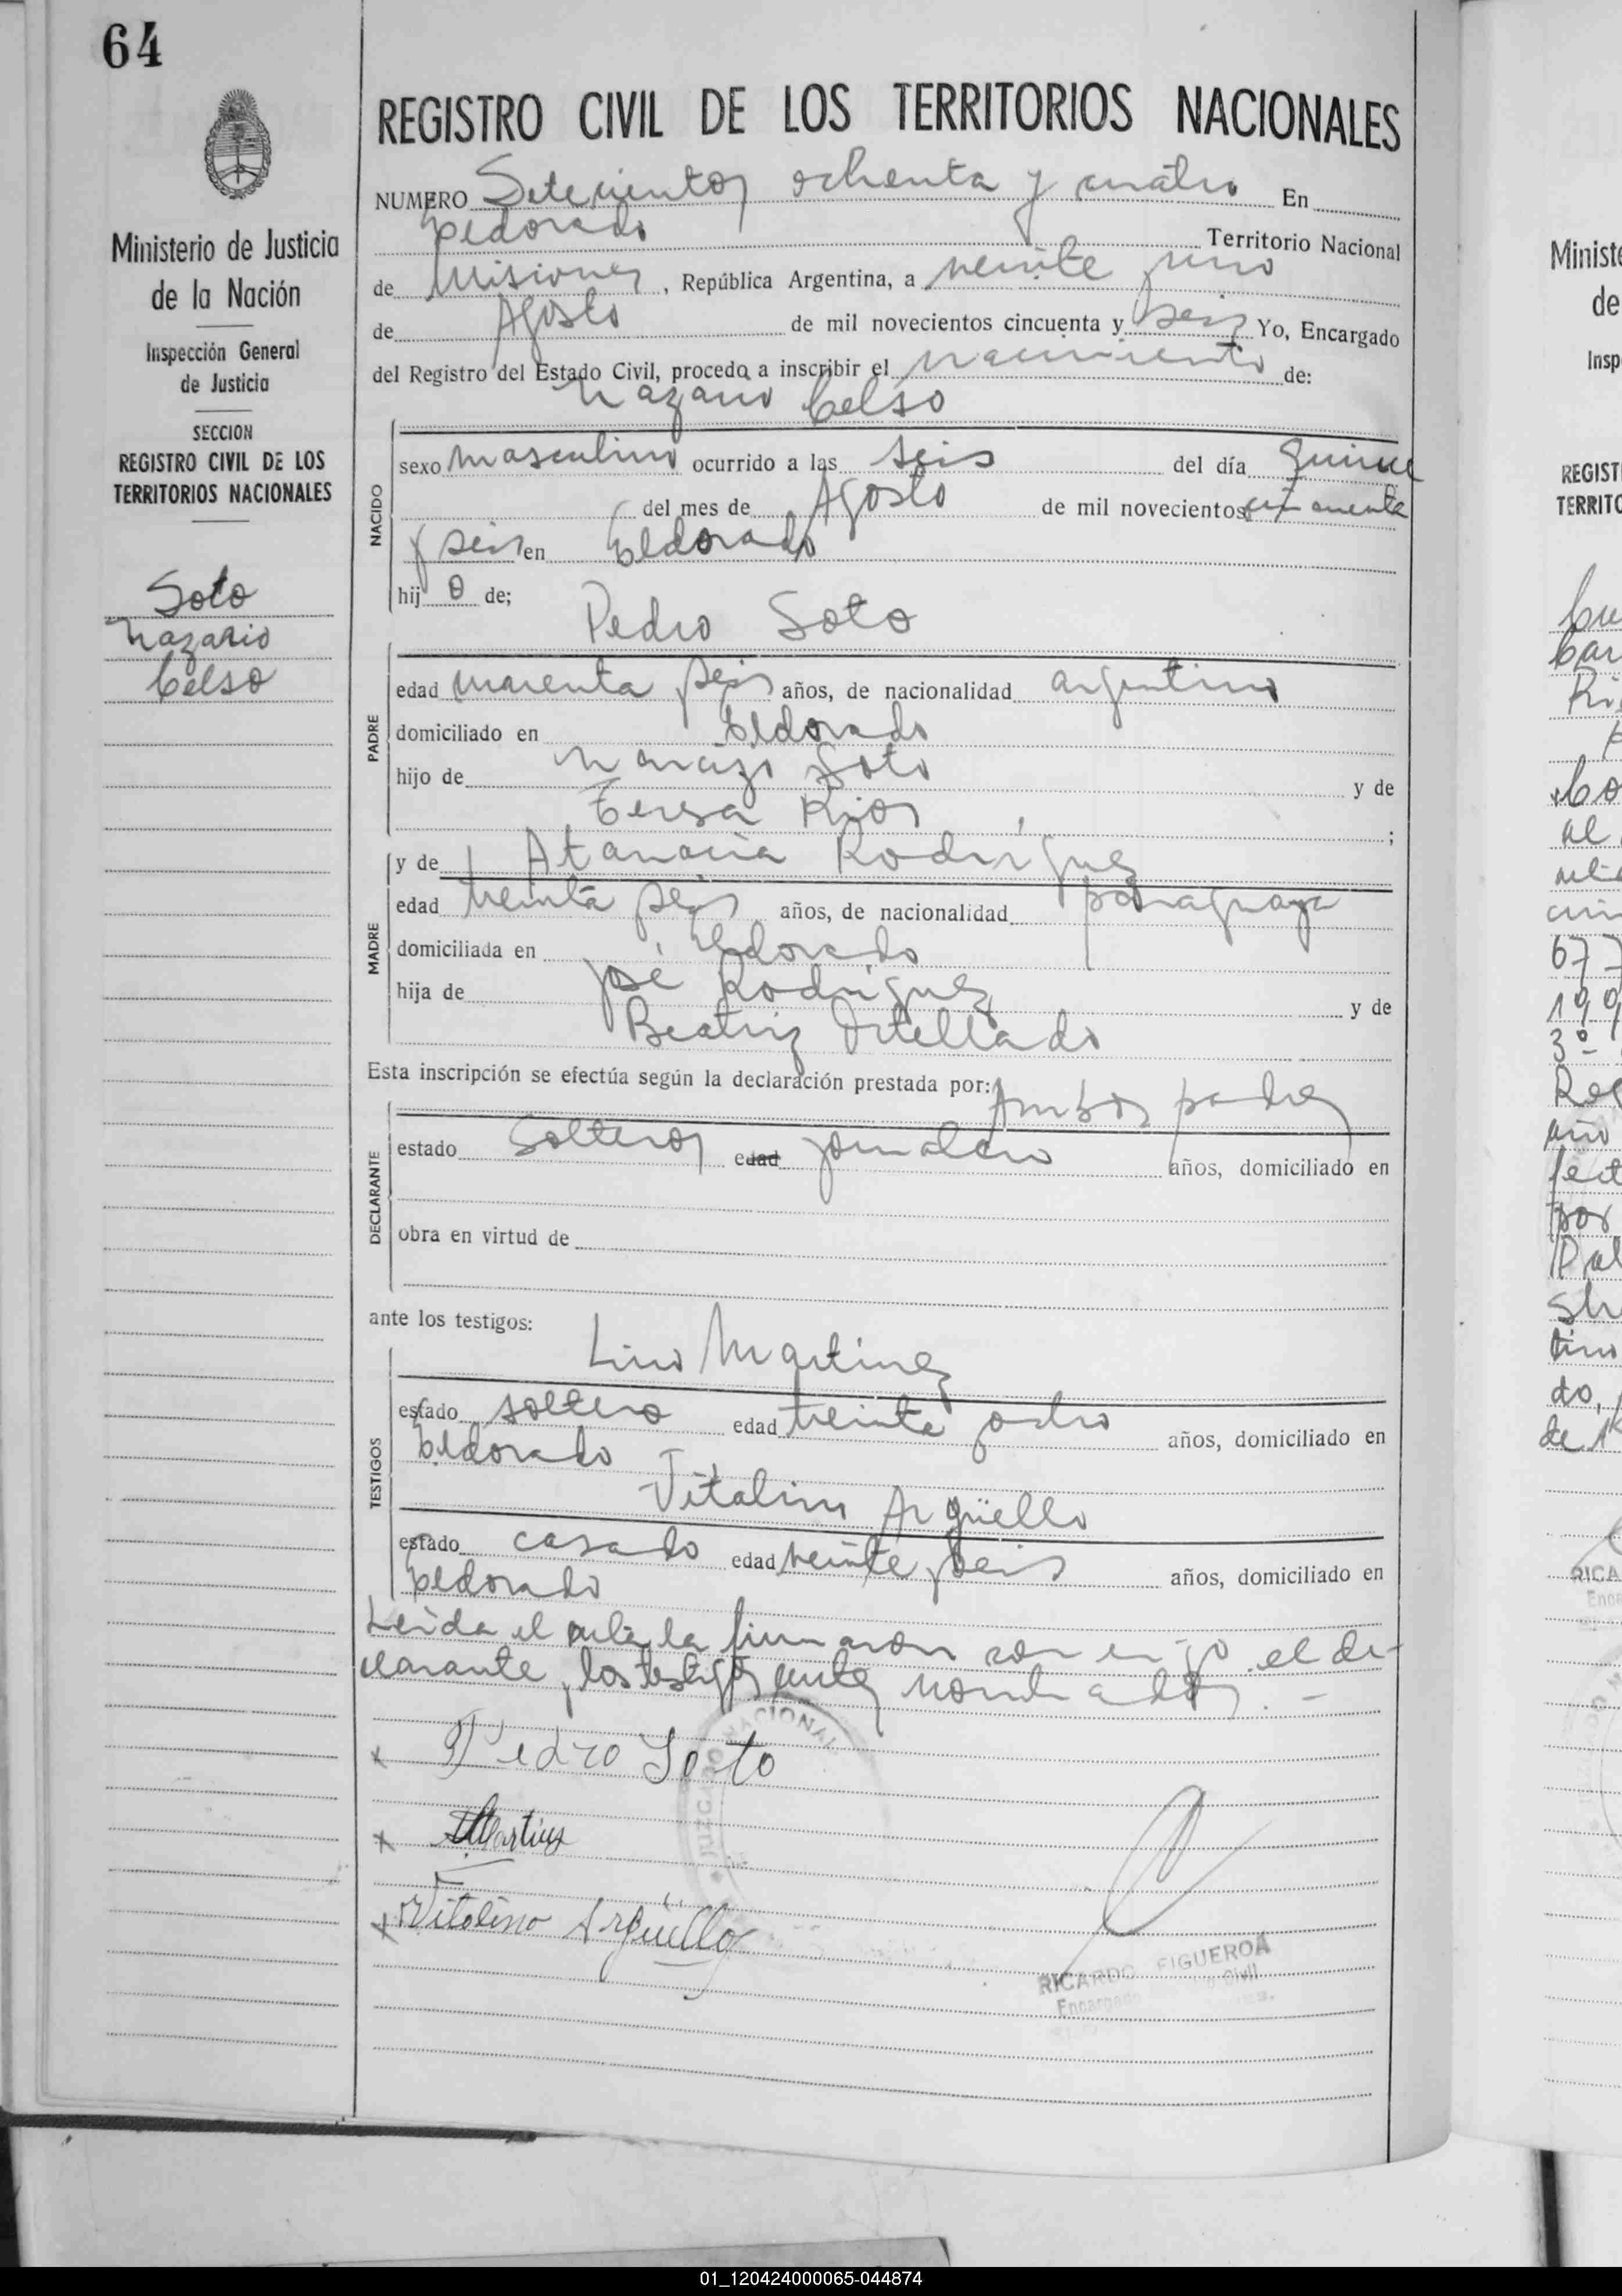 64
REGISTRO CIVIL DE LOS TERRITORIOS NACIONALES
Ministerio de Justicia
de la Nación
Inspección General
de Justicia
SECCION
REGISTRO CIVIL DE LOS
TERRITORIOS NACIONALES
Soto
Nazario
Celso
NUMERO Setecientos ochenta y cuatro En
Eldorado Territorio Nacional
de Misiones, República Argentina, a veinte y uno
de Agosto de mil novecientos cincuenta y seis Yo, Encargado
del Registro del Estado Civil, procedo a inscribir el nacimiento de:
Nazario Celso
NACIDO
sexo masculino ocurrido a las seis del día quince
del mes de Agosto de mil novecientos cincuenta
y seis en Eldorado
hij o de;
Pedro Soto
PADRE
edad cuarenta y seis años, de nacionalidad argentino
domiciliado en Eldorado
hijo de Narcizo Soto y de
Teresa Rios ;
y de Atanacia Rodríguez
MADRE
edad treinta y seis años, de nacionalidad paraguaya
domiciliada en Eldorado
hija de José Rodríguez y de
Beatriz Ortellado
Esta inscripción se efectúa según la declaración prestada por: Ambos padres
DECLARANTE
estado solteros edad jornalero años, domiciliado en
obra en virtud de
ante los testigos:
Lino Martinez
TESTIGOS
estado soltero edad treinta y ocho años, domiciliado en
Eldorado
Vitalino Argüello
estado casado edad veinte y seis años, domiciliado en
Eldorado
Leida el acta la firmaron conmigo el de-
clarante y los testigos antes nombrados. -
x Pedro Soto
x LMartinez
x Vitalino Argüello
JUZGADO NACIONAL
RICARDO FIGUEROA
Encargado Civil
Ministe
de
Insp
REGIST
TERRITO
677
3º
Reg
año
por
do,
de 1
RICA
Enca
01_120424000065-044874